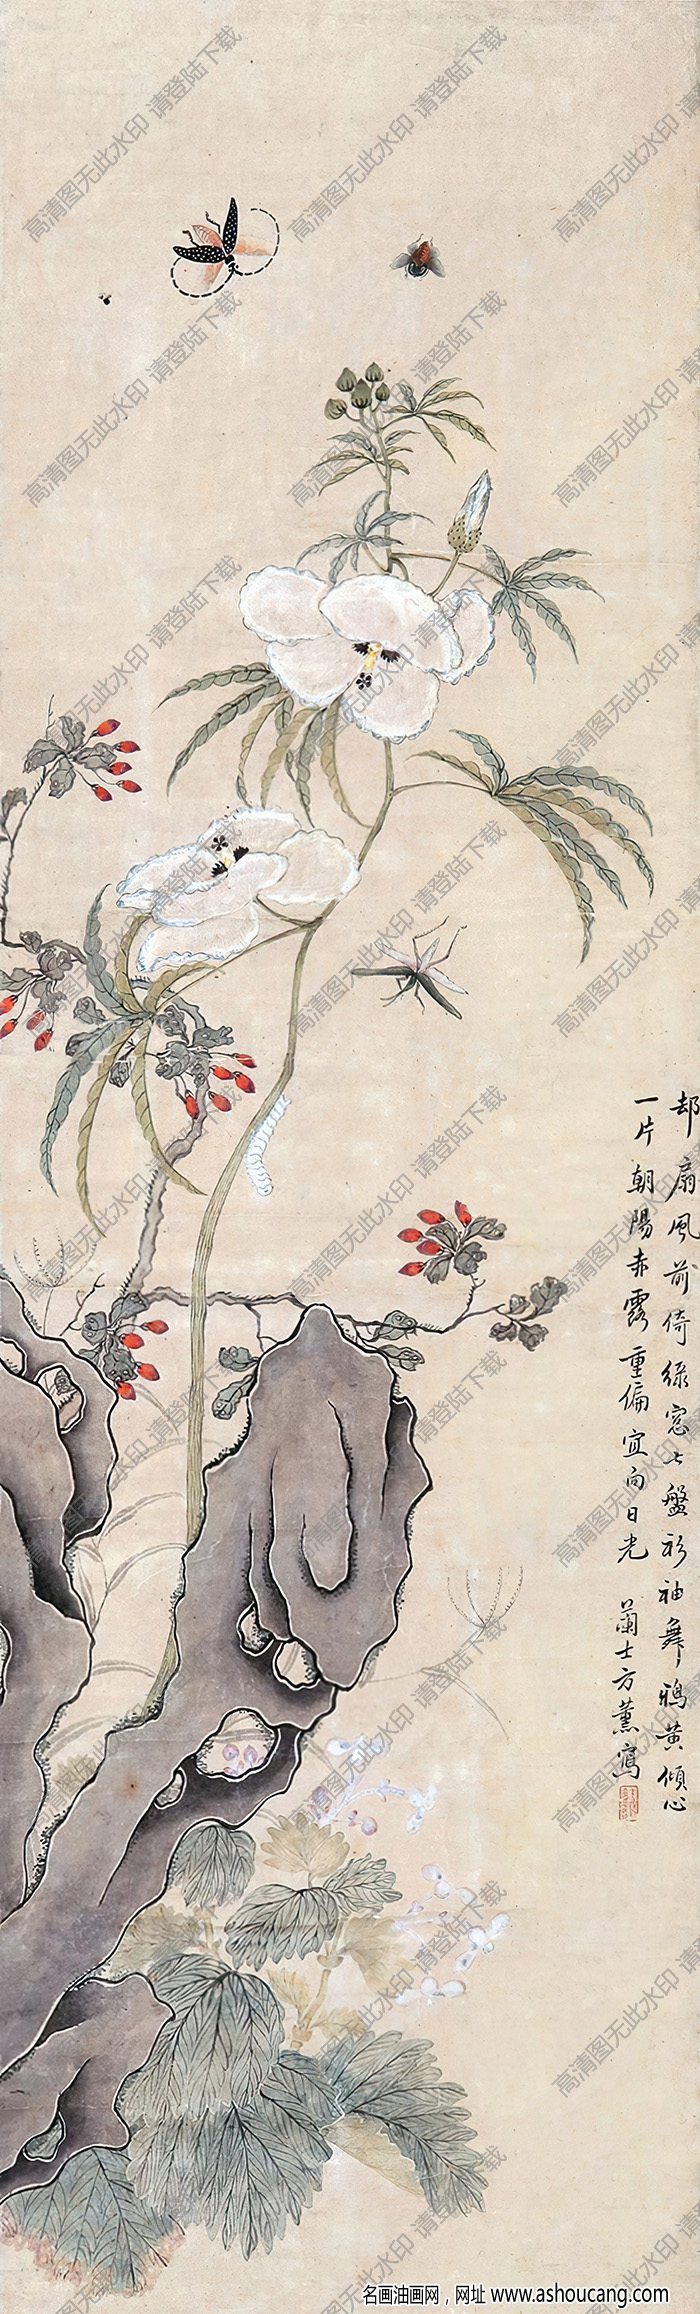 高清图无此水印 请登陆下载
却扇風前倚綠窓七盤衫袖舞鴉黃傾心
一片朝陽赤露重偏宜向日光
蘭士方薰寫
名画油画网，网址 www.ashoucang.com